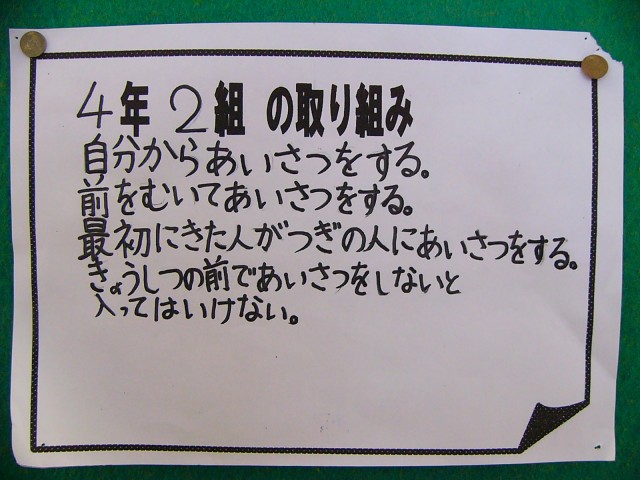 4年2組の取り組み
自分からあいさつをする。
前をむいてあいさつをする。
最初にきた人がつぎの人にあいさつをする。
きょうしつの前であいさつをしないと
入ってはいけない。